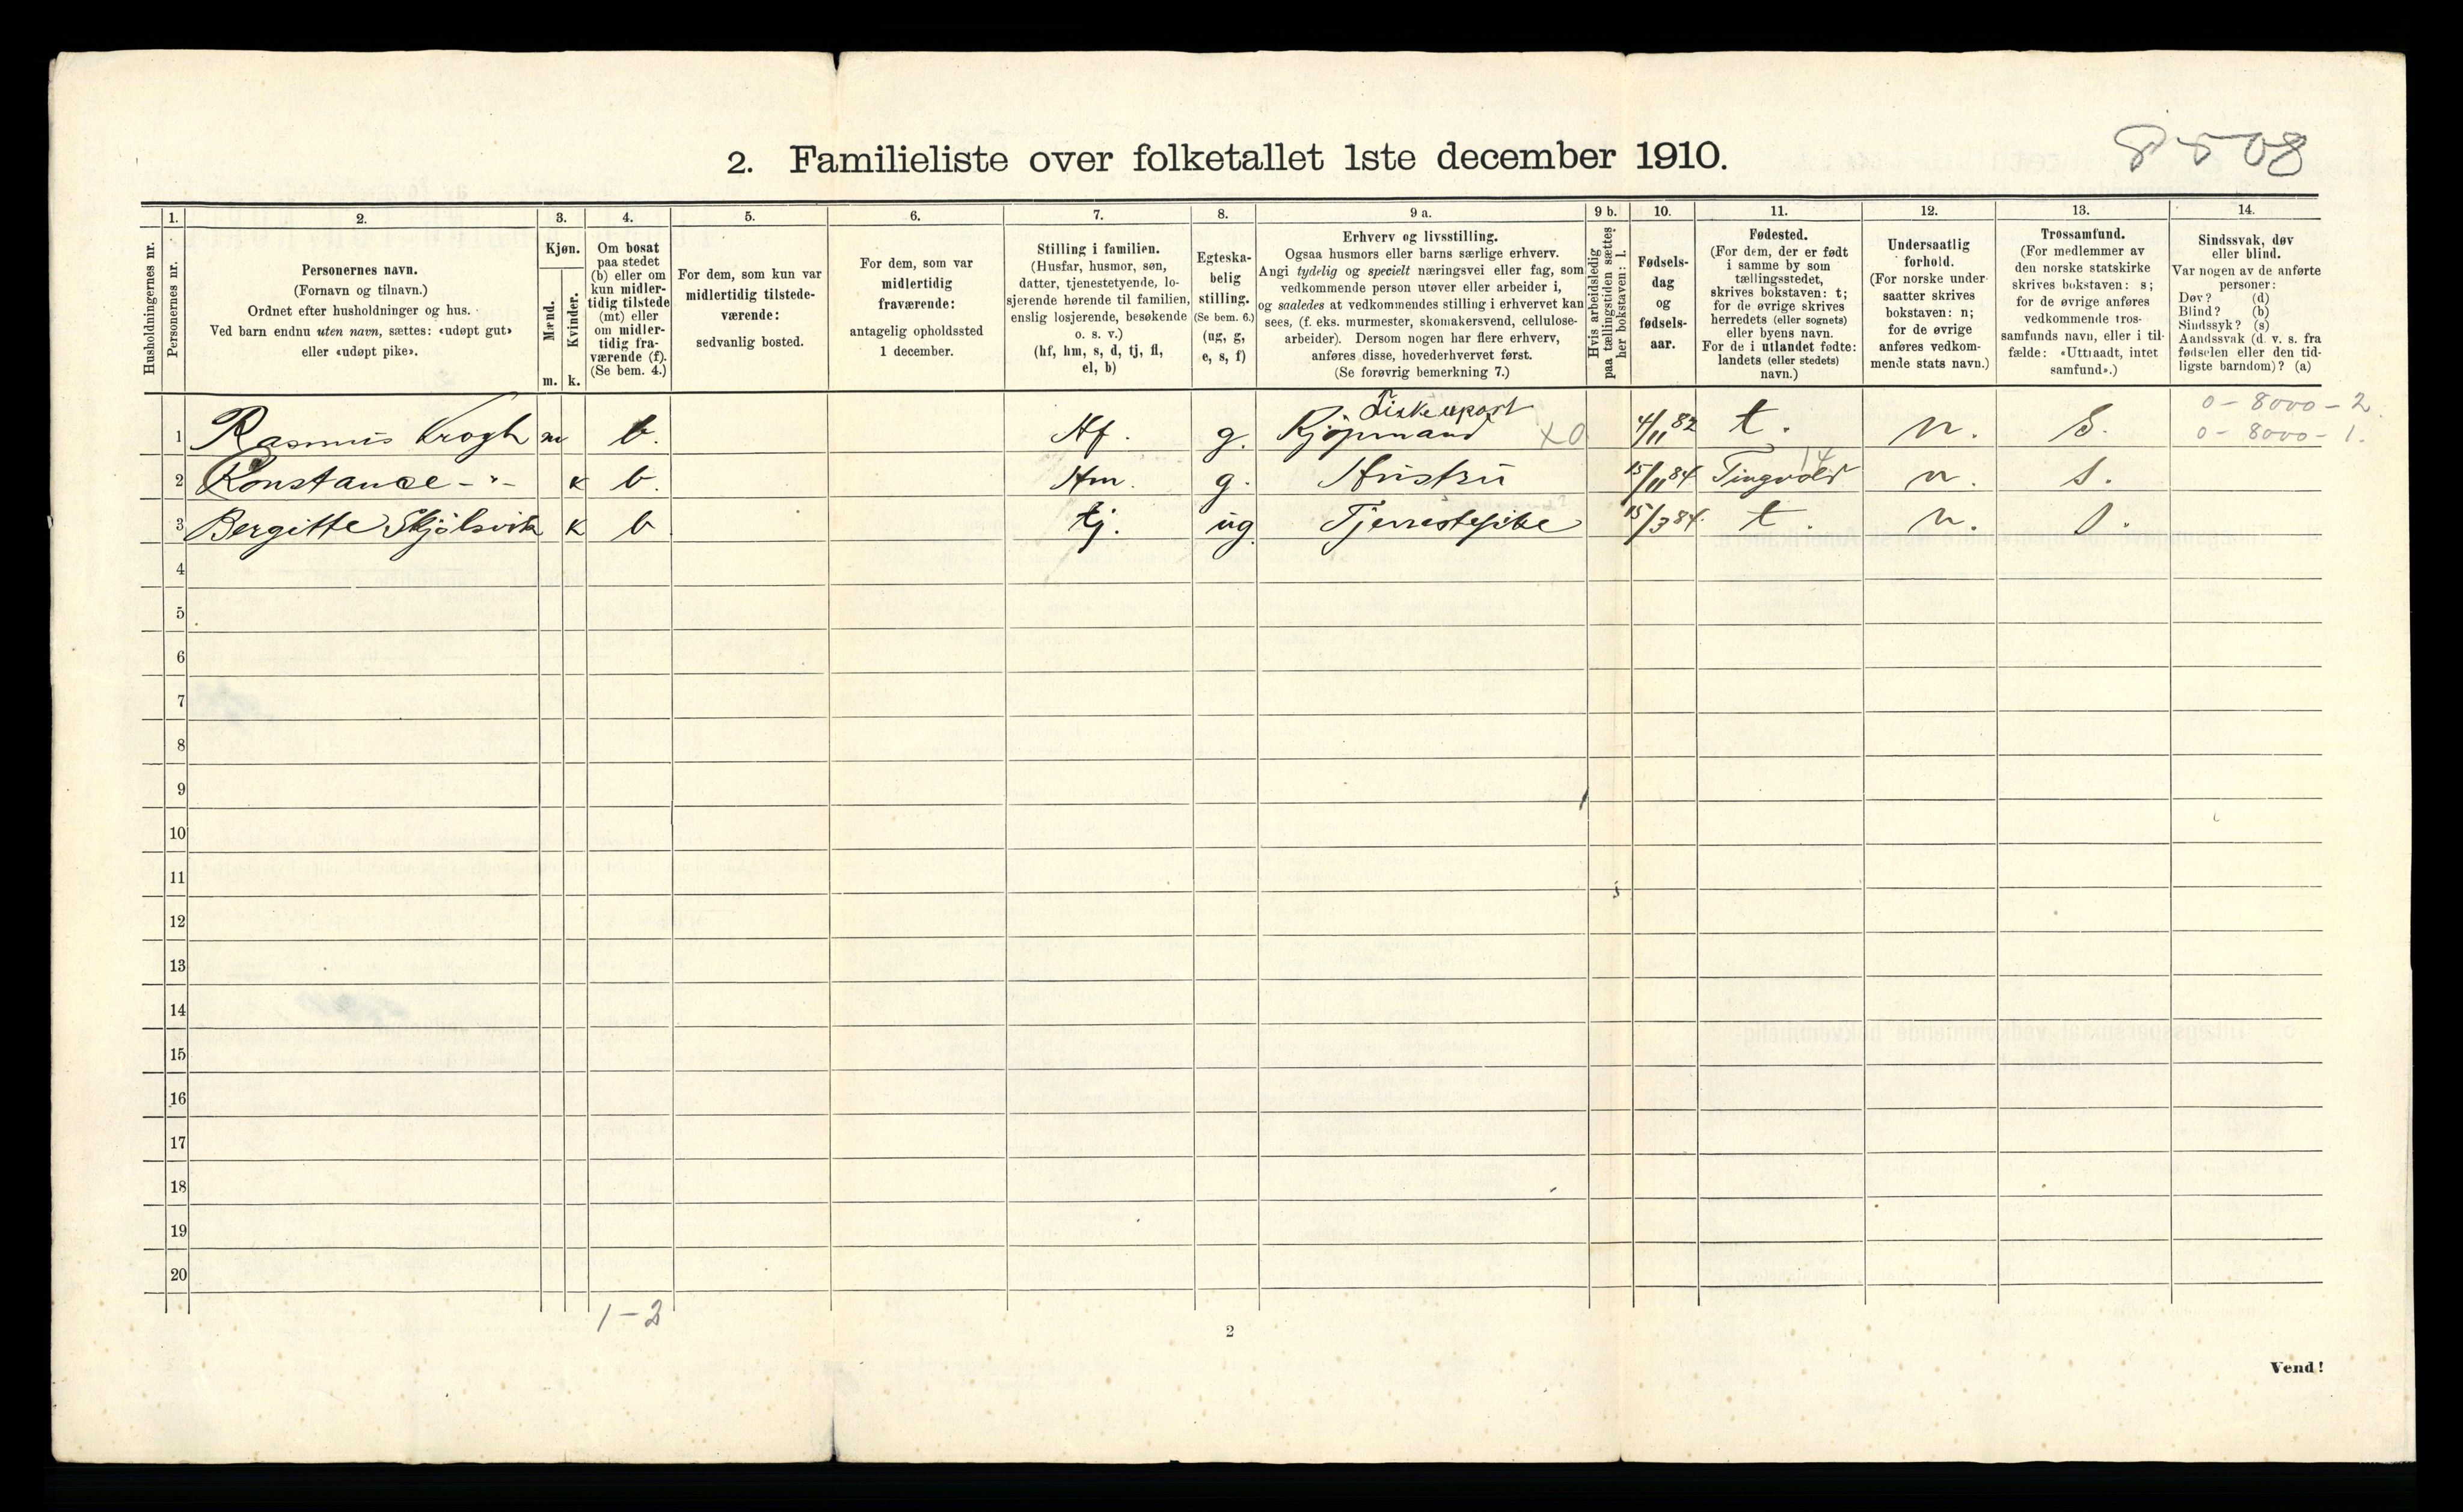 2. Familieliste over folketallet 1ste december 1910.
8508
Husholdningernes nr.
1.
Personernes nr.
2.
Personernes navn.
(Fornavn og tilnavn.)
Ordnet efter husholdninger og hus.
Ved barn endnu uten navn, sættes: «udøpt gut»
eller «udøpt pike».
3.
Kjøn.
Mænd.
Kvinder.
m.
k.
4.
Om bosat
paa stedet
(b) eller om
kun midler-
tidig tilstede
(mt) eller
om midler-
tidig fra-
værende (f).
(Se bem. 4.)
5.
For dem, som kun var
midlertidig tilstede-
værende:
sedvanlig bosted.
6.
For dem, som var
midlertidig
fraværende:
antagelig opholdssted
1 december.
7.
Stilling i familien.
(Husfar, husmor, søn,
datter, tjenestetyende, lo-
sjerende hørende til familien,
enslig losjerende, besøkende
o. s. v.)
(hf, hm, s, d, tj, fl,
el, b)
8.
Egteska-
belig
stilling.
(Se bem. 6.)
(ug, g,
e, s, f)
9 a.
Erhverv og livsstilling.
Ogsaa husmors eller barns særlige erhverv.
Angi tydelig og specielt næringsvei eller fag, som
vedkommende person utøver eller arbeider i,
og saaledes at vedkommendes stilling i erhvervet kan
sees, (f. eks. murmester, skomakersvend, cellulose-
arbeider). Dersom nogen har flere erhverv,
anføres disse, hovederhvervet først.
(Se forøvrig bemerkning 7.)
9 b.
Hvis arbeidsledig
paa tællingstiden sættes
her bokstaven: l.
10.
Fødsels-
dag
og
fødsels-
aar.
11.
Fødested.
(For dem, der er født
i samme by som
tællingsstedet,
skrives bokstaven: t;
for de øvrige skrives
herredets (eller sognets)
eller byens navn.
For de i utlandet fødte:
landets (eller stedets)
navn.)
12.
Undersaatlig
forhold.
(For norske under-
saatter skrives
bokstaven: n;
for de øvrige
anføres vedkom-
mende stats navn.)
13.
Trossamfund.
(For medlemmer av
den norske statskirke
skrives bokstaven: s;
for de øvrige anføres
vedkommende tros-
samfunds navn, eller i til-
fælde: «Uttraadt, intet
samfund».)
14.
Sindssvak, døv
eller blind.
Var nogen av de anførte
personer:
Døv? (d)
Blind? (b)
Sindssyk? (s)
Aandssvak (d. v. s. fra
fødselen eller den tid-
ligste barndom)? (a)
Fiskexport 0 - 8000 - 2.
1 Rasmus Krogh m b. Hf. g. Kjøpmand x0 4/11 82 t. n. S. 0 - 8000 - 1.
14
2 Konstance -"- k b. Hm. g. Hustru 15/11 84 Tingvold n. s.
3 Bergitte Skjølsvik k b tj. ug. Tjenestepike 15/3 84. t. n. s.
4
5
6
7
8
9
10
11
12
13
14
15
16
17
18
19
20
1 - 2
2
Vend!